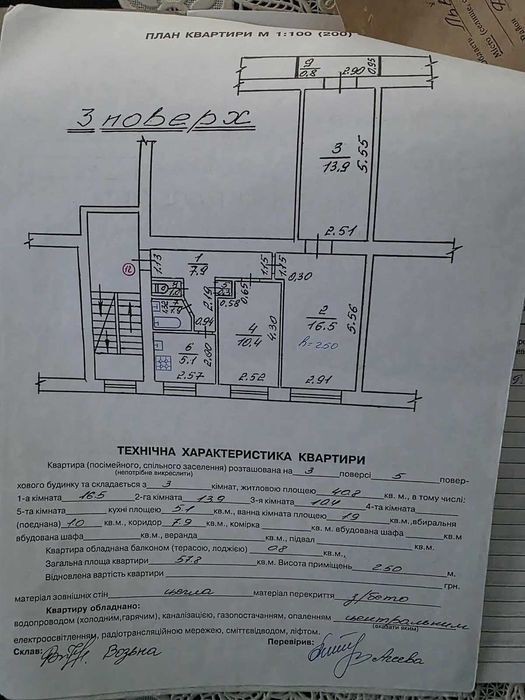 ПЛАН КВАРТИРИ М 1:100 (200)
3 поверх
9
0.8
2.90
0.95
3
13.9
5.55
2.51
12
1.13
1
7.9
1.15
1.15
0.30
2.19
0.58
0.65
0.94
2
16.5
h=250
5.56
4
10.4
4.30
6
5.1
2.60
2.57
2.52
2.91
ТЕХНІЧНА ХАРАКТЕРИСТИКА КВАРТИРИ
Квартира (посімейного, спільного заселення) розташована на 3 поверсі 5 повер-
(непотрібне викреслити)
хового будинку та складається з 3 кімнат, житловою площею 40.8 кв. м., в тому числі:
1-а кімната 16.5 2-га кімната 13.9 3-я кімната 10.4 4-та кімната
5-та кімната кухні площею 5.1 кв.м., ванна кімната площею 1.9 кв.м.,вбиральня
(поєднана) 1.0 кв.м., коридор 7.9 кв.м., комірка кв.м. вбудована шафа кв.м
вбудована шафа кв.м., веранда кв.м., підвал кв.м.
Квартира обладнана балконом (терасою, лоджією) 0.8 кв.м.,
Загальна площа квартири 57.8 кв.м. Висота приміщень 2.50 м.
Відновлена вартість квартири грн.
матеріал зовнішніх стін цегла матеріал перекриття з/бето
Квартиру обладнано:
водопроводом (холодним,гарячим), каналізацією, газопостачанням, опаленням центральним
(вказати яким)
електроосвітленням, радіотрансляційною мережею, сміттєвідводом, ліфтом.
Склав: Водяна Перевірив: Агеева